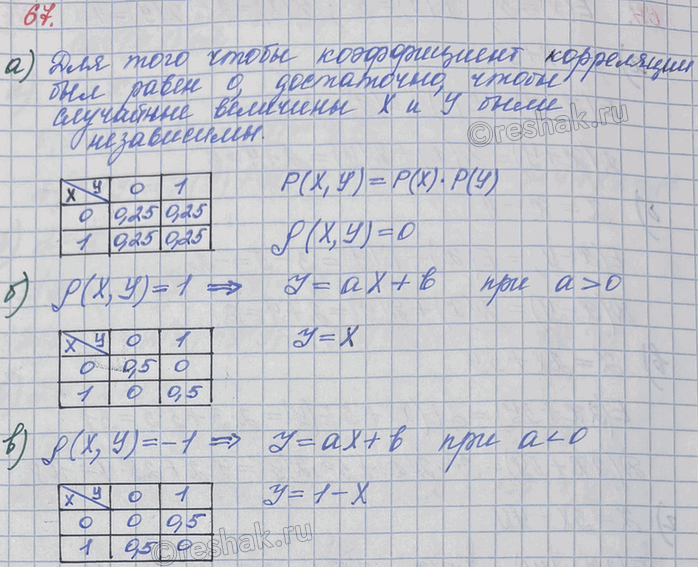 67.
а) Для того чтобы коэффициент корреляции
был равен 0, достаточно, чтобы
случайные величины X и Y были
независимы.
X Y 0 1
0 0,25 0,25
1 0,25 0,25
P(X,Y)=P(X)·P(Y)
ρ(X,Y)=0
б) ρ(X,Y)=1 ⇒ Y=aX+b при a>0
X Y 0 1
0 0,5 0
1 0 0,5
Y=X
в) ρ(X,Y)=-1 ⇒ Y=aX+b при a<0
X Y 0 1
0 0 0,5
1 0,5 0
Y=1-X
©reshak.ru
©reshak.ru
©reshak.ru